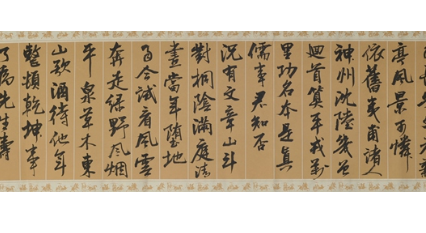 亭風景可憐
依舊夷甫諸人
神州沈陸幾曾
迴首算平戎萬
里功名本是真
儒事君知否
況有文章山斗
對桐陰滿庭清
晝當年墮地
而今試看風雲
奔走綠野風煙
平泉草木東
山歌酒待他年
整頓乾坤事
了為先生壽